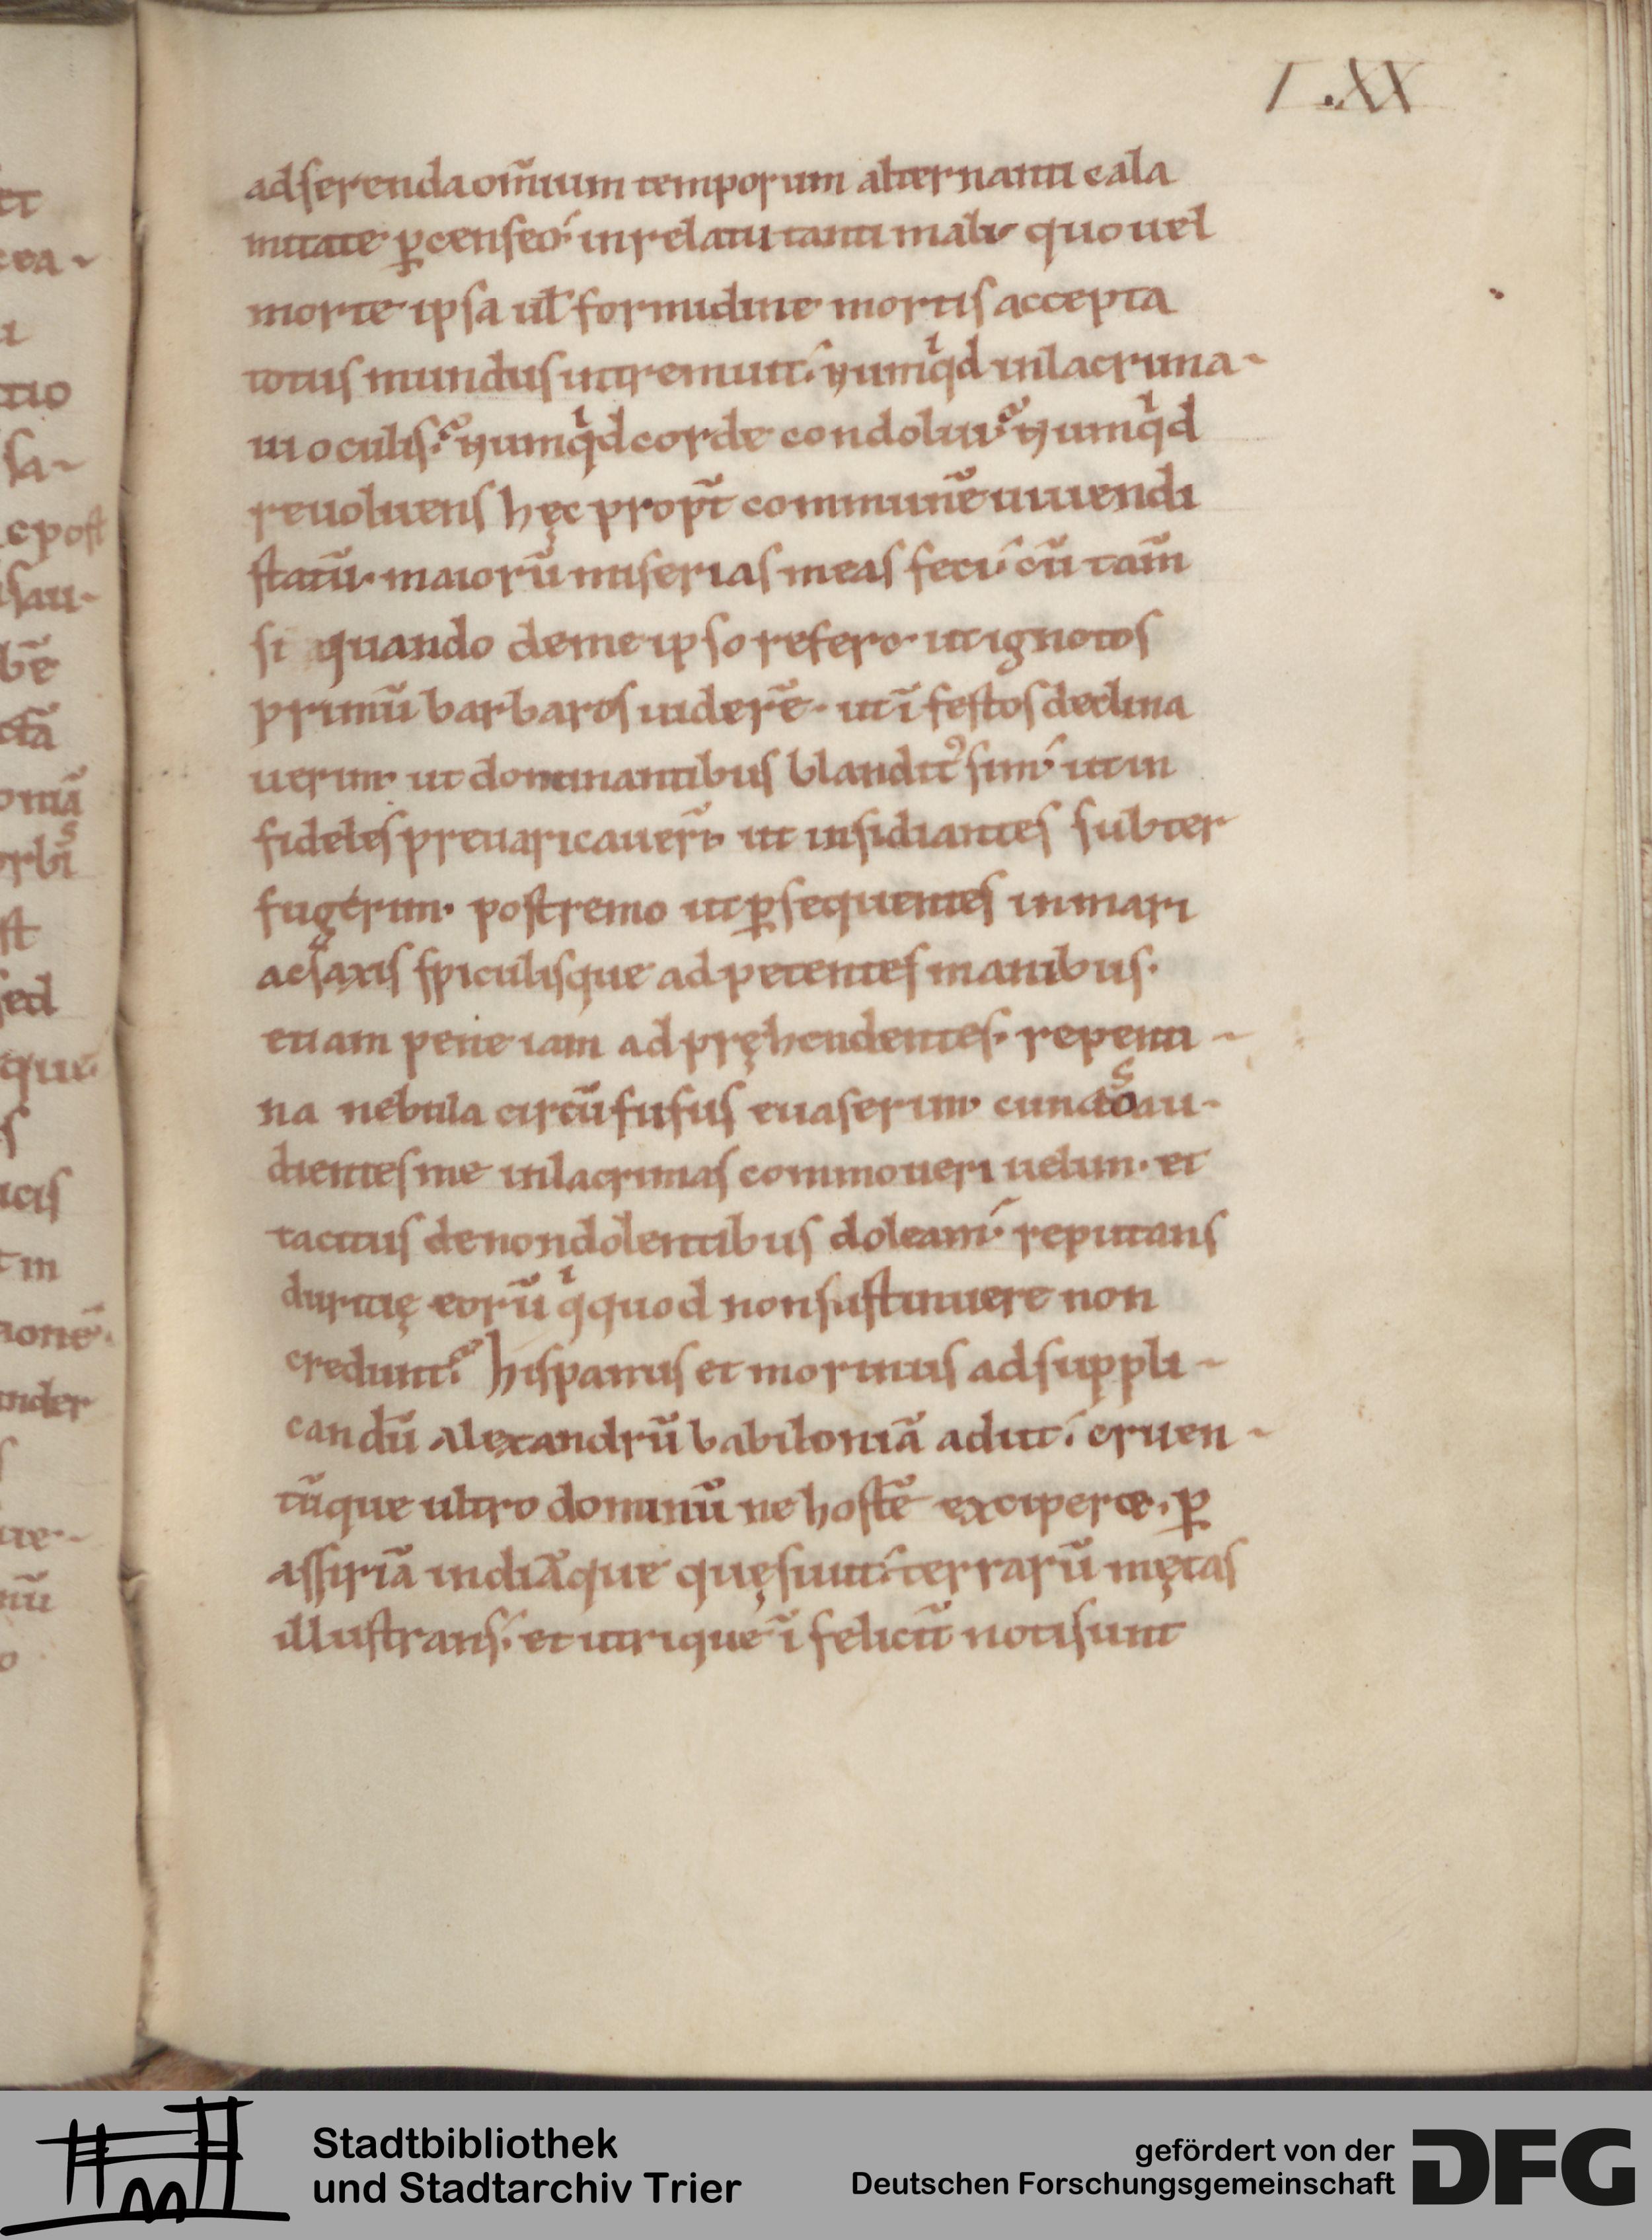 LXX
adserenda om̄ium temporum alternanti cala
mitate ꝑcenseo. inrelatu tanti mali. quo uel
morte ipsa ul̄ formidine mortis accepta
totus mundus intremuit. numqͥd inlacrima-
ui oculis? numqͥd corde condolui? numqͥd
reuoluens hęc propt̄ commune̅ uiuendi
statū. maiorū miserias meas feci. cū tam̄
si quando deme ipso refero. ut ignotos
primū barbaros uiderē. ut ī festos declina
uerim. ut dominantibus blandit᾽ sim. ut in
fideles preuaricauerī. ut insidiantes subter
fugerim. postremo ut ꝑsequentes inmari
acsaxis spiculisque adpetentes manibus.
etiam pene iam adpręhendentes. repenti-
na nebula circūfusus euaserim. cunctos au-
dientes me inlacrimas commoueri uelim. et
tacitus denondolentibus doleam. reputans
duritię eorū qͥ quod nonsustinuere non
credunt. hispanus et morinus adsuppli-
candū alexandrū babiloniā adiit. cruen-
tūque ultro dominū ne hostē exciperet. ꝑ
assiriā indiāque quęsiuit. terrarū mętas
illustrans. et utrique ī felicit̄ notisunt
et
cea-
tio
sa-
c post
sau-
bē
ctā
oniā
st
sed
que
acis
in
ionē.
nder
nū
Stadtbibliothek
und Stadtarchiv Trier
gefördert von der
Deutschen Forschungsgemeinschaft
DFG